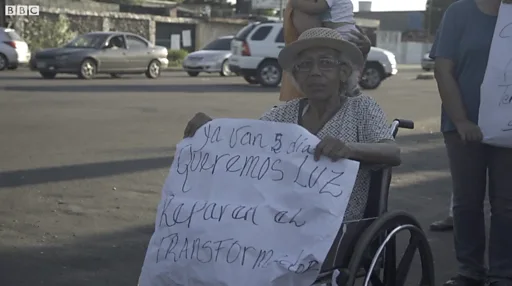 BBC
Ya VAN 5 dia
QUEREMOS LUZ
Reparen el
TRANSFORMADOR